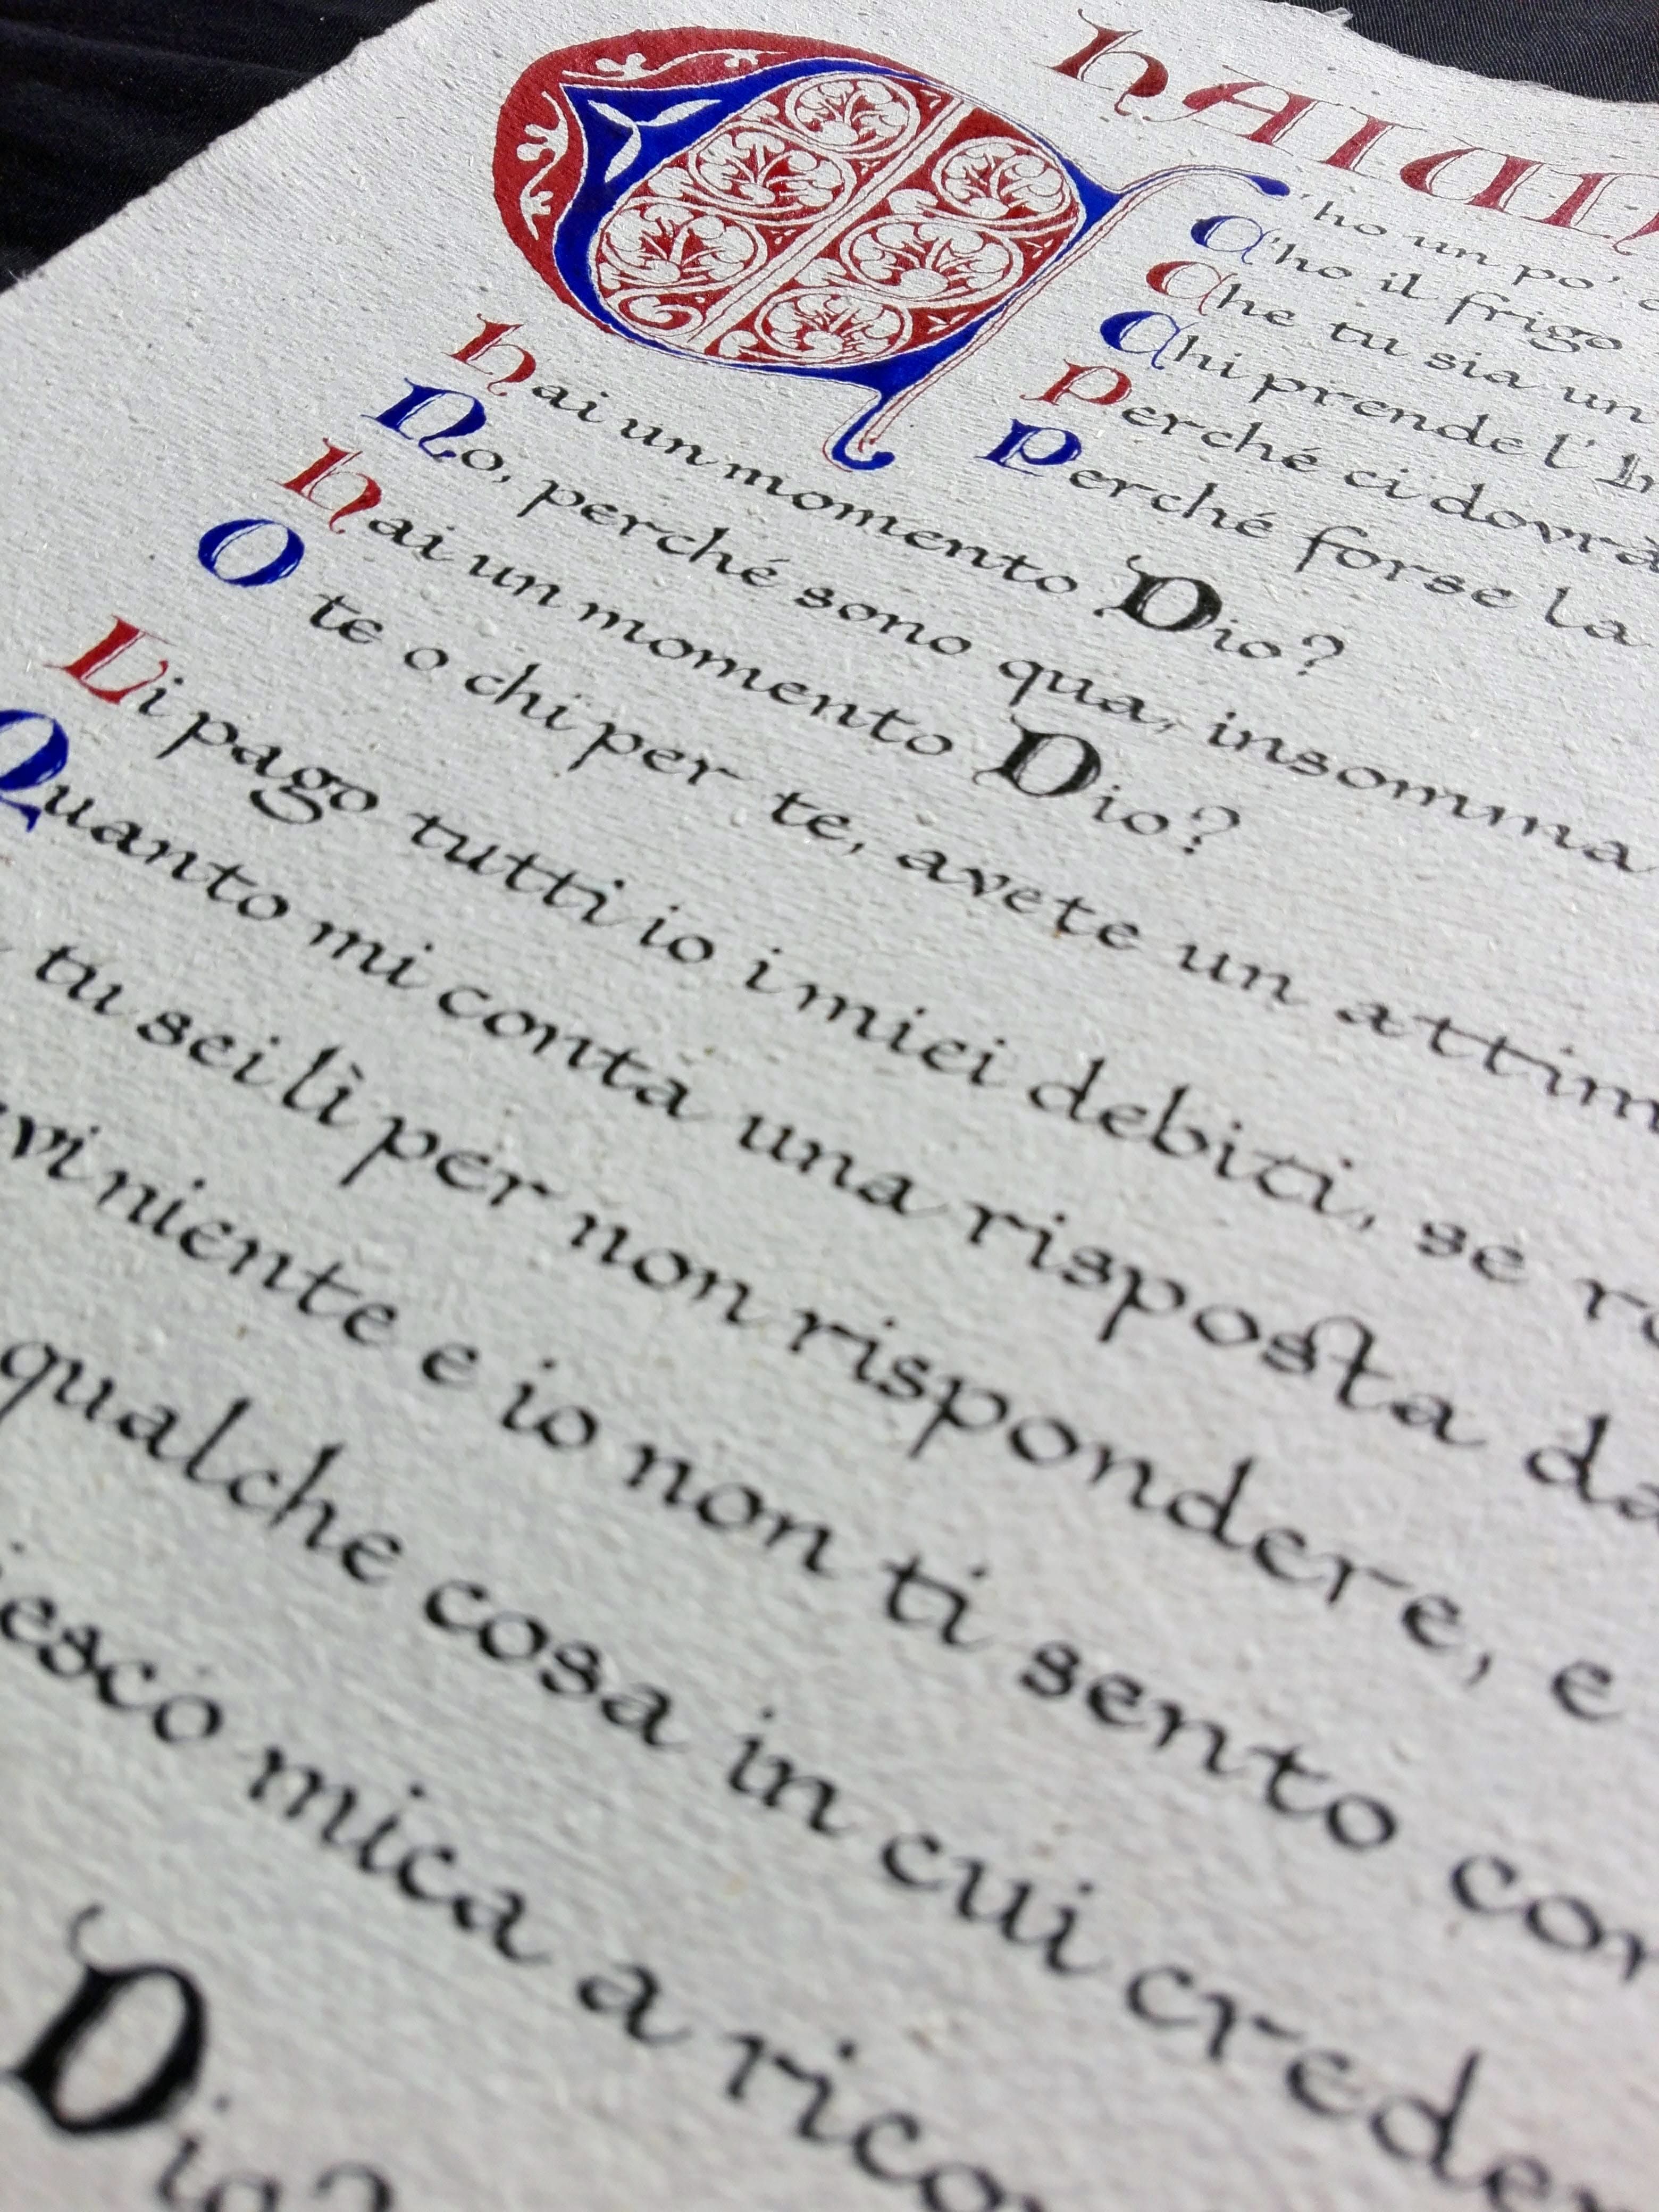 HAI UN
C'ho un po' di
C'ho il frigo
Che tu sia un
Chi prende l'In
Perché ci dovrà
Perché forse la
Hai un momento Dio?
No, perché sono qua, insomma
Hai un momento Dio?
O te o chi per te, avete un attim
Li pago tutti io i miei debiti, se ro
Quanto mi conta una risposta da
tu sei lì per non rispondere, e
vi niente e io non ti sento con
qualche cosa in cui creder
iesco mica a ricor
Dio?